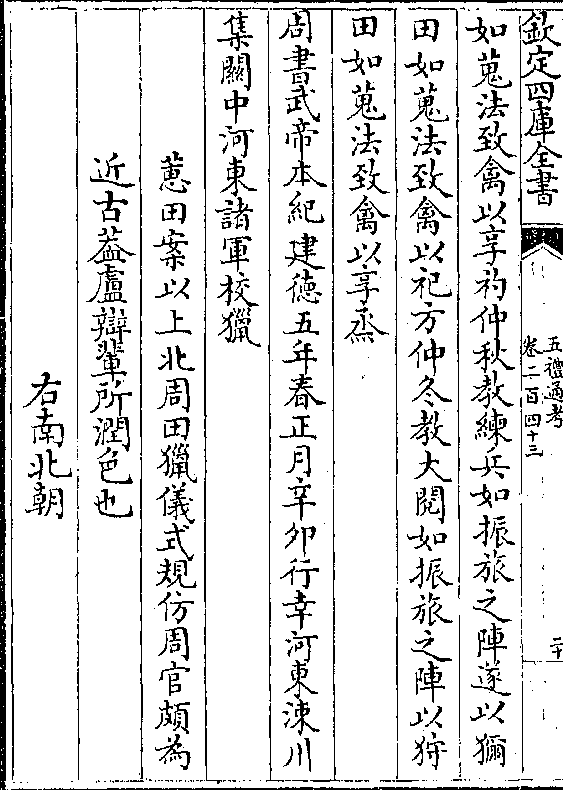 欽定四庫全書
五禮通考
卷二百四十三
二十
如蒐法致禽以享礿仲秋教練兵如振旅之陣遂以獮
田如蒐法致禽以祀方仲冬教大閱如振旅之陣以狩
田如蒐法致禽以享烝
周書武帝本紀建德五年春正月辛卯行幸河東涑川
集關中河東諸軍校獵
蕙田案以上北周田獵儀式規仿周官頗為
近古葢盧辯輩所潤色也
右南北朝